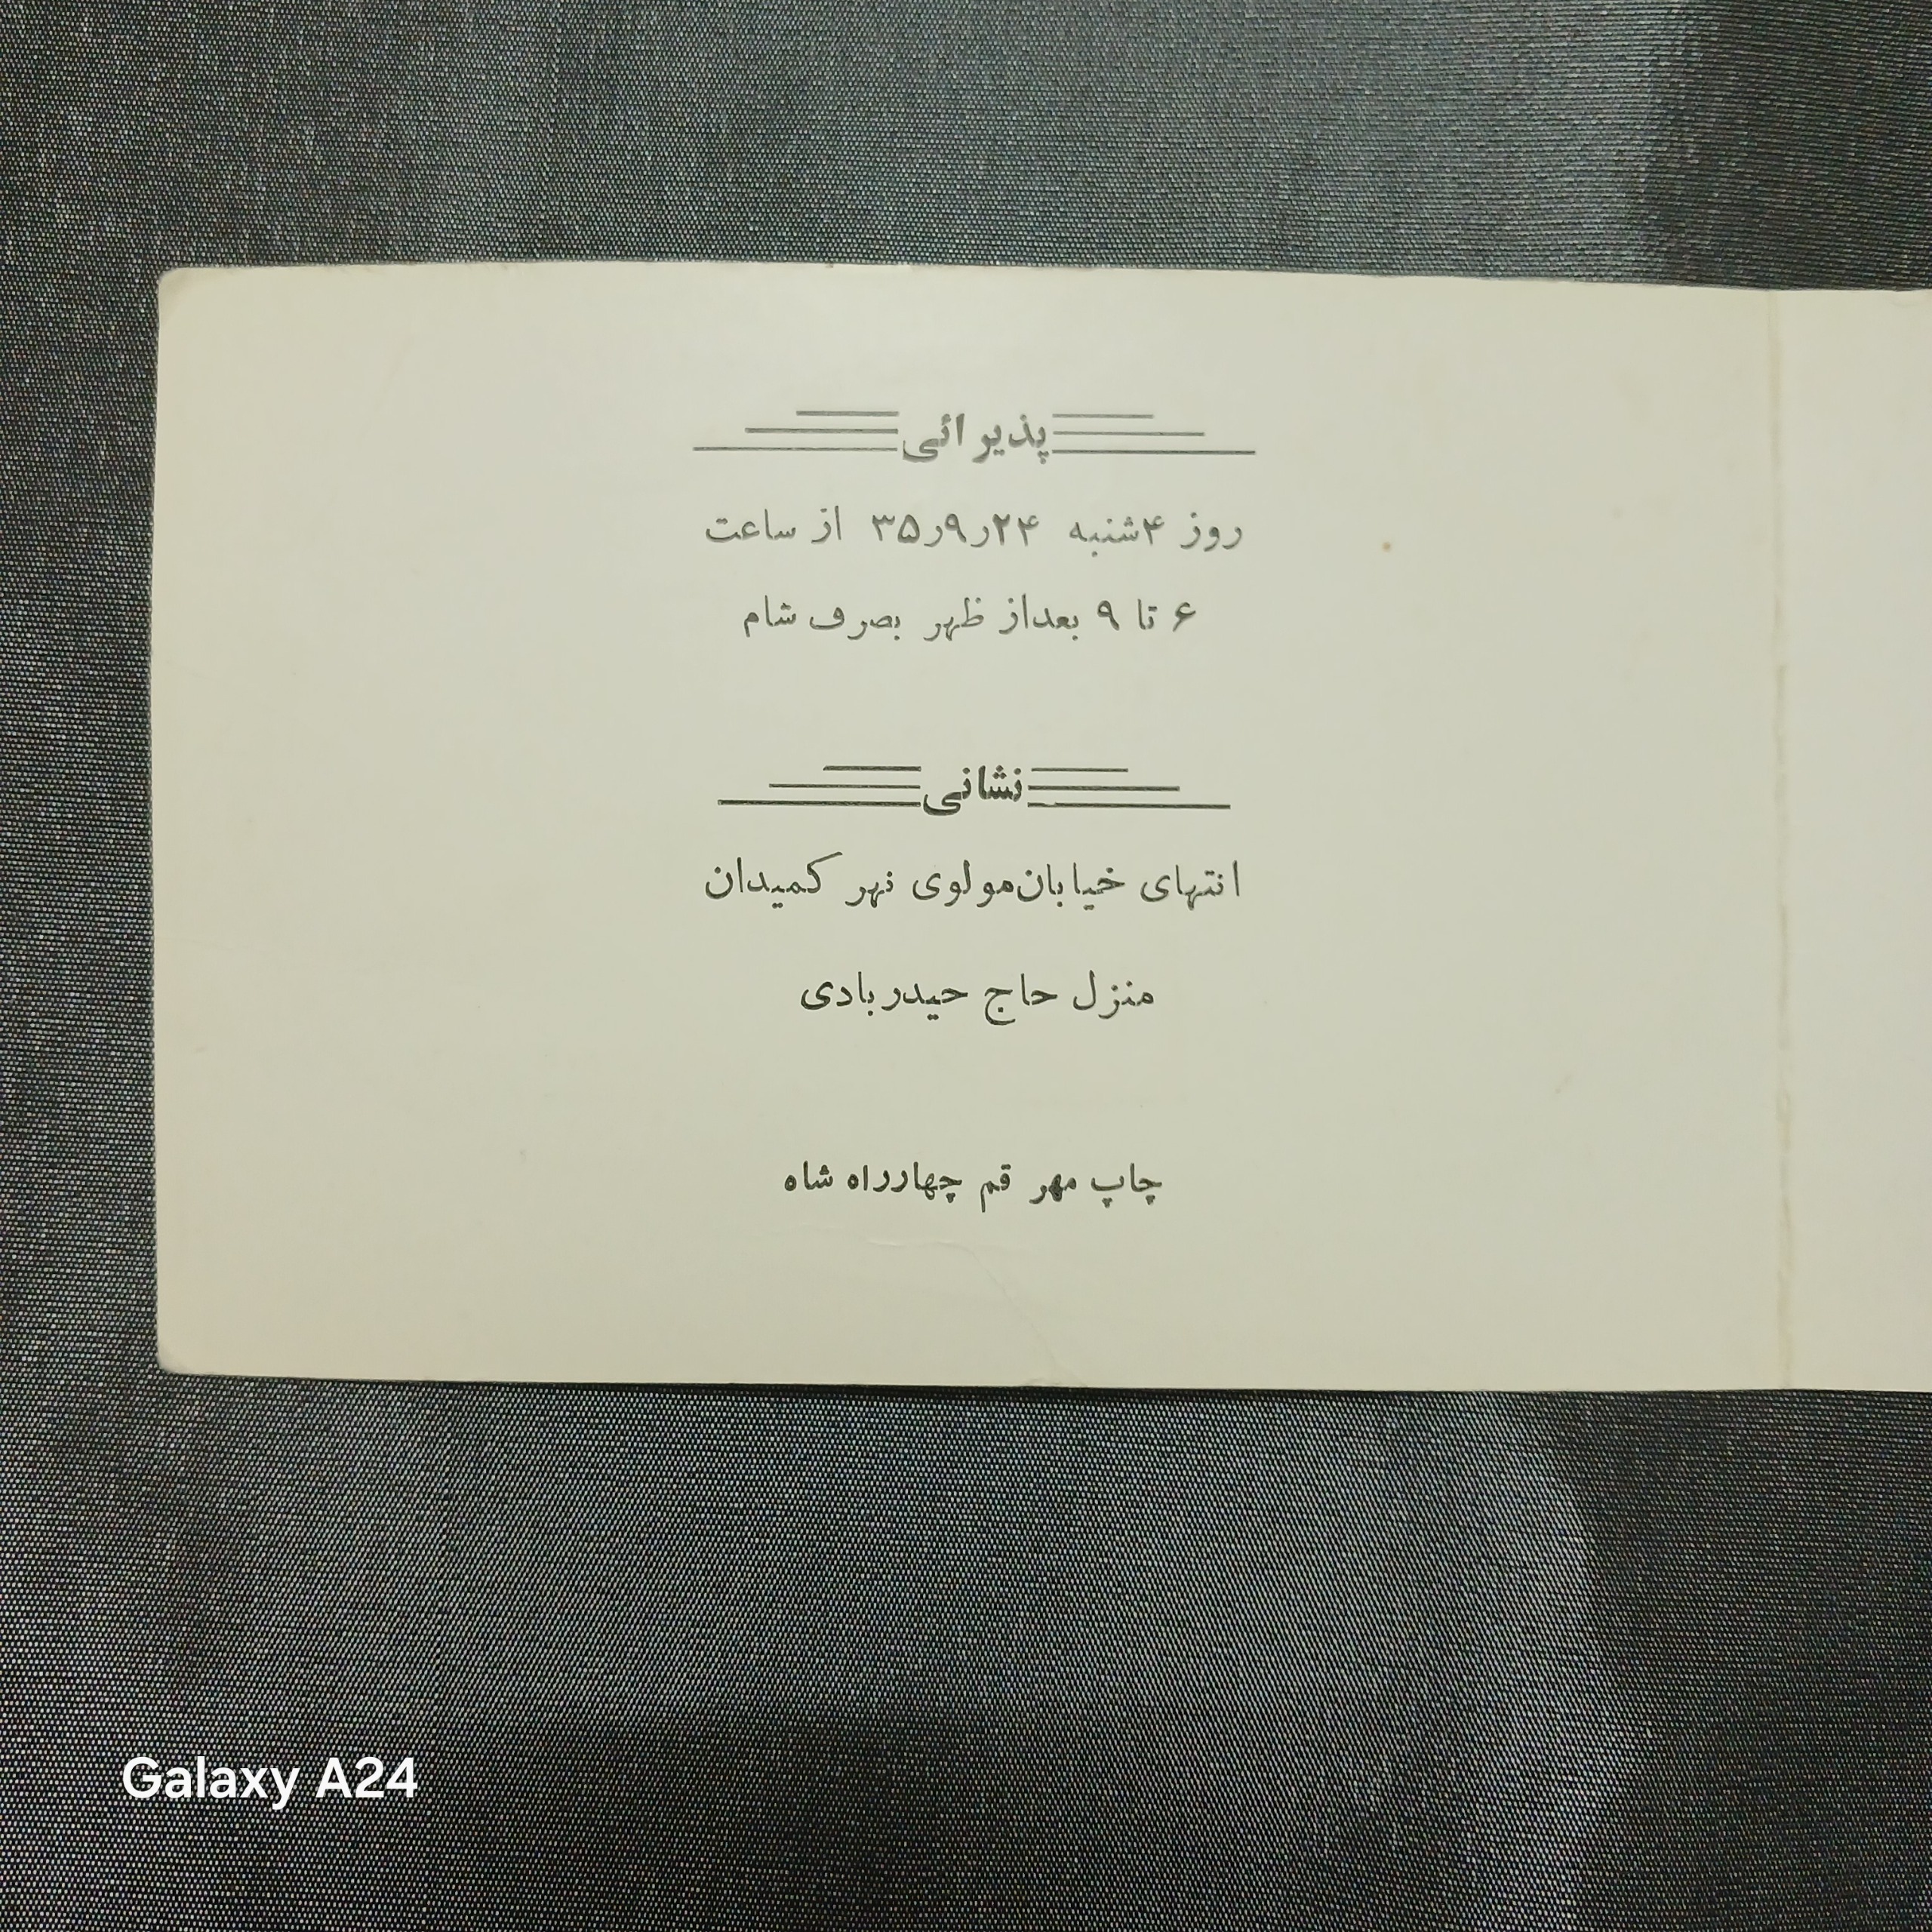 پذیرائی
روز ۴شنبه ۲۴ر۹ر۳۵ از ساعت
۶ تا ۹ بعداز ظهر بصرف شام
نشانی
انتهای خیابان‌مولوی نهر کمیدان
منزل حاج حیدربادی
چاپ مهر قم چهارراه شاه
Galaxy A24